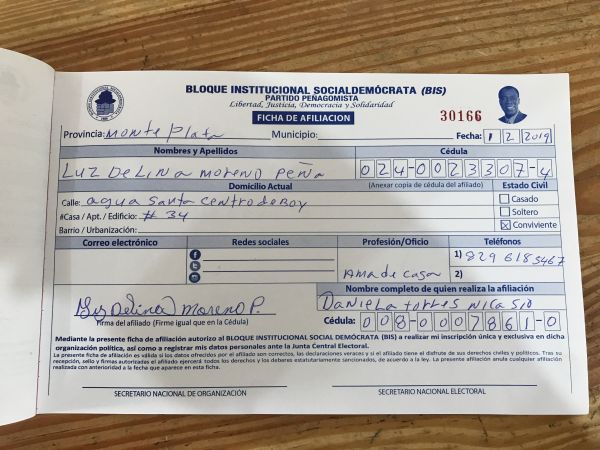 BLOQUE INSTITUCIONAL SOCIALDEMÓCRATA (BIS)
PARTIDO PEÑAGOMISTA
Libertad, Justicia, Democracia y Solidaridad
FICHA DE AFILIACION
30166
Provincia: Monte Plata Municipio: Fecha: 1 2 2019
Nombres y Apellidos Cédula
LUZ DELINA MORENO PEÑA 024-0023307-4
Domicilio Actual (Anexar copia de cédula del afiliado) Estado Civil
Calle: agua Santa Centro de Boy Casado
#Casa / Apt. / Edificio: # 34 Soltero
Barrio / Urbanización: Conviviente
Correo electrónico Redes sociales Profesión/Oficio Teléfonos
1) 829 618 5467
Ama de casa 2)
Nombre completo de quien realiza la afiliación
Luz Delina Moreno P. DANIELA TORRES NICASIO
Firma del afiliado (Firme igual que en la Cédula) Cédula: 008-0007861-0
Mediante la presente ficha de afiliación autorizo al BLOQUE INSTITUCIONAL SOCIAL DEMÓCRATA (BIS) a realizar mi inscripción única y exclusiva en dicha
organización política, así como a registrar mis datos personales ante la Junta Central Electoral.
La presente ficha de afiliación es válida si los datos ofrecidos por el afiliado son correctos, las declaraciones veraces y si el afiliado tiene el disfrute de sus derechos civiles y políticos. Tras su
recepción, sello y firmas autorizadas el afiliado ejercerá todos los derechos y los deberes estatutariamente sancionados, de acuerdo a la ley. La presente afiliación anula cualquier afiliación
realizada con anterioridad a la fecha que aparece en esta ficha.
SECRETARIO NACIONAL DE ORGANIZACIÓN SECRETARIO NACIONAL ELECTORAL